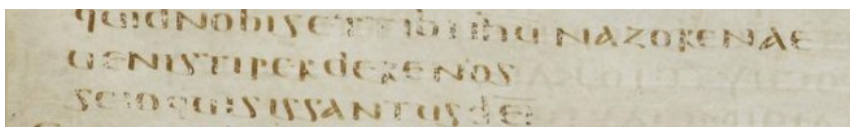 quidnobisettibiihunazorenae
uenistiperderenos
scioquisissantusdei